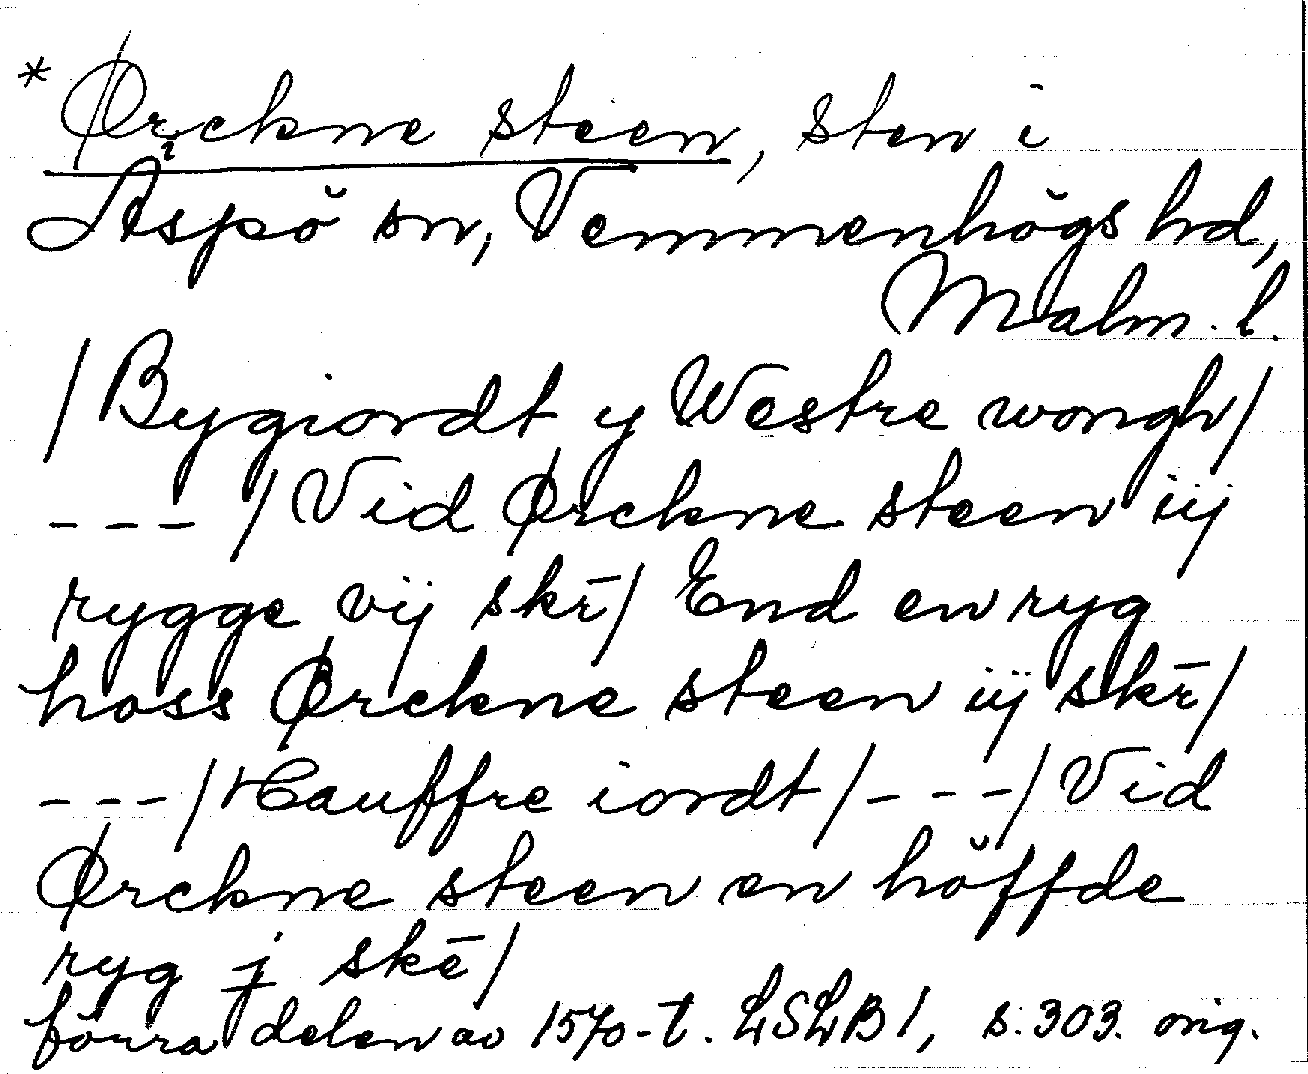 * Ørckne steen, sten i
Aspö sn, Vemmenhögs hd,
Malm. l.
/Bygiordt y Westre wongh/
--- /Vid Ørckne steen iij
rygge vij skr̄/ End en ryg
hoss Ørckne steen iij skr̄/
---/Hauffre iordt/---/Vid
Ørckne steen en höffde
ryg j skē/
förra delen av 1570-t. LSLB 1, s. 303. orig.